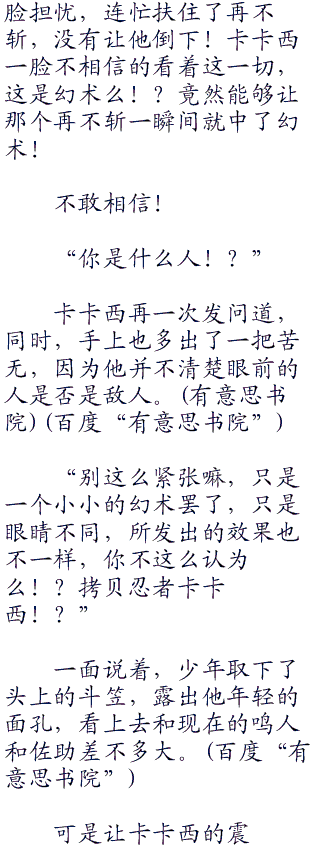 脸担忧，连忙扶住了再不
斩，没有让他倒下！卡卡西
一脸不相信的看着这一切，
这是幻术么！？竟然能够让
那个再不斩一瞬间就中了幻
术！
不敢相信！
“你是什么人！？”
卡卡西再一次发问道，
同时，手上也多出了一把苦
无，因为他并不清楚眼前的
人是否是敌人。(有意思书
院)(百度“有意思书院”)
“别这么紧张嘛，只是
一个小小的幻术罢了，只是
眼睛不同，所发出的效果也
不一样，你不这么认为
么！？拷贝忍者卡卡
西！？”
一面说着，少年取下了
头上的斗笠，露出他年轻的
面孔，看上去和现在的鸣人
和佐助差不多大。(百度“有
意思书院”)
可是让卡卡西的震